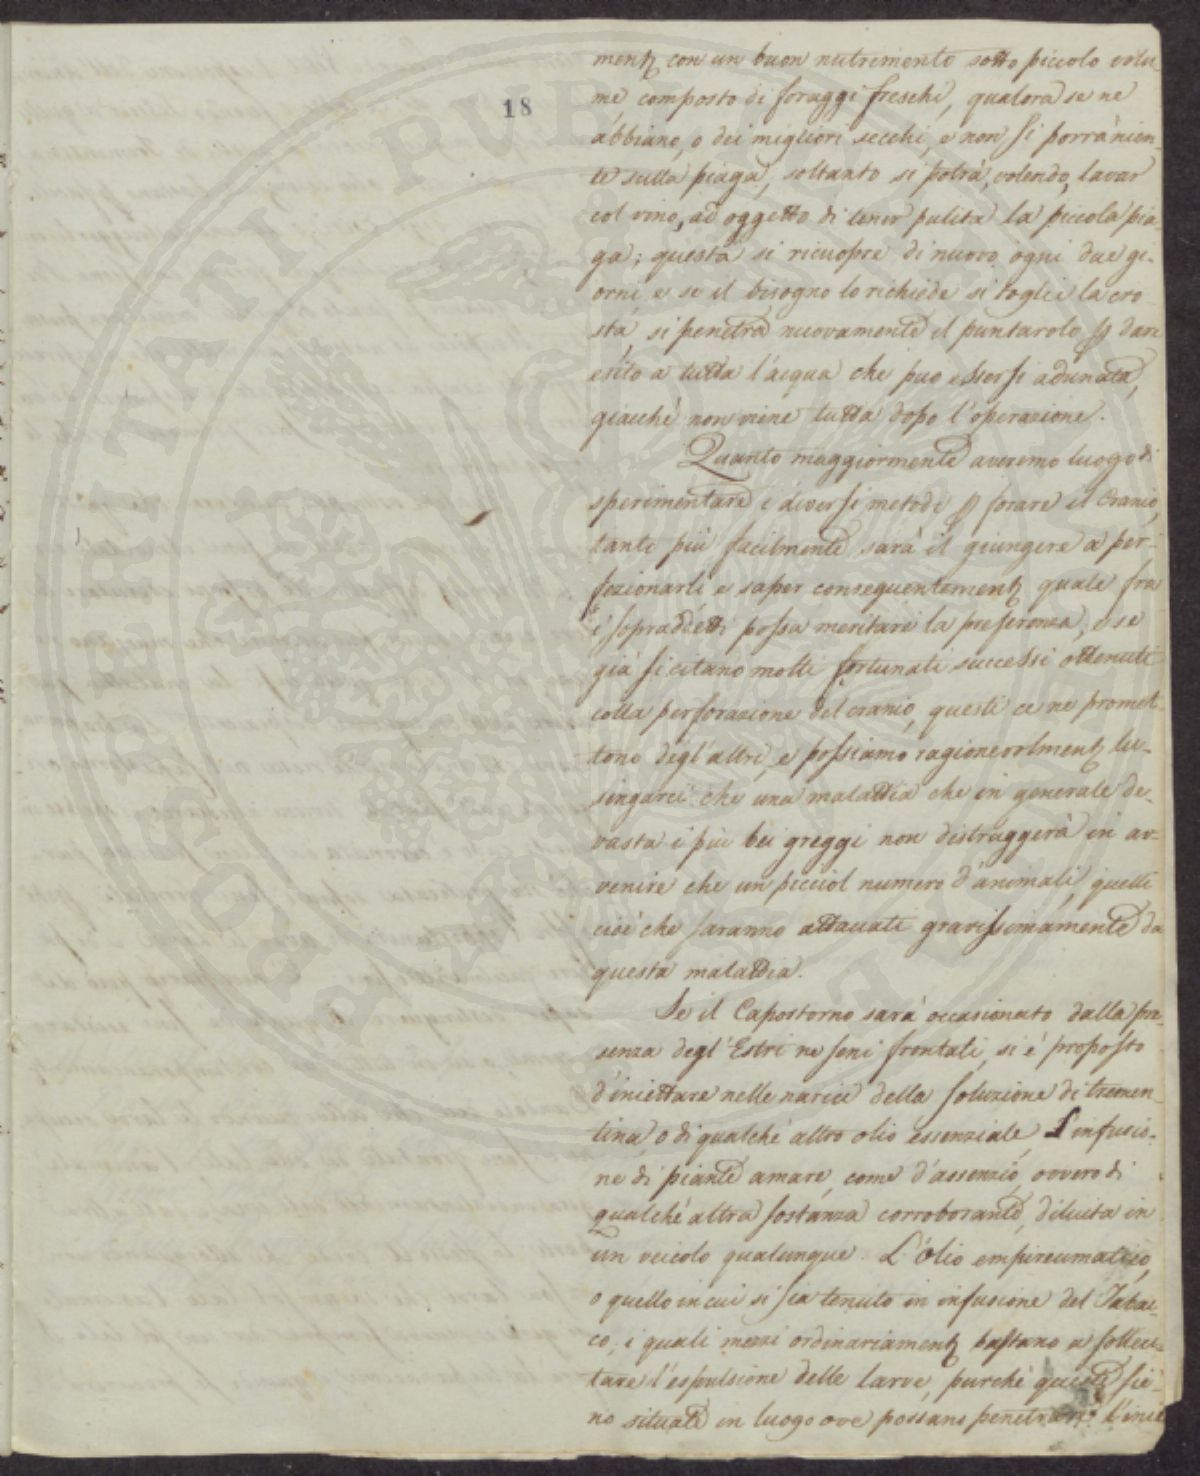 18
mente con un buon nutrimento sotto piccolo volu-
me composto di foraggi freschi, qualora se ne
abbiano, o dei migliori secchi, e non si porrà nien-
te sulla piaga, soltanto si potrà, volendo, lavar
col vino, ad oggetto di tener pulita la piccola pia-
ga; questa si ricuopre di nuovo ogni due gi-
orni, e se il bisogno lo richiede si toglie la cro-
sta, si penetra nuovamente il puntarolo per dare
esito a tutta l'acqua che può essersi adunata,
giacchè non viene tutta dopo l'operazione.
Quanto maggiormente averemo luogo di
sperimentare i diversi metodi per forare il Cranio,
tanto più facilmente sarà il giungere a per-
fezionarli e saper conseguentemente quale fra
i sopraddetti possa meritare la preferenza, e se
già si citano molti fortunati successi ottenuti
colla perforazione del cranio, questi ce ne promet-
tono degl'altri, e possiamo ragionevolmente lu-
singarci che una malattia che in generale de-
vasta i più bei greggi non distruggerà in av-
venire che un picciol numero d'animali, quelli
cioè che saranno attaccati gravissimamente da
questa malattia.
Se il Capostorno sarà occasionato dalla pre-
senza degl'Estri ne seni frontali, si è proposto
d'iniettare nelle narici della soluzione di tremen-
tina, o di qualche altro olio essenziale, L'infusio-
ne di piante amare, come d'assenzio, ovvero di
qualche altra sostanza corroborante, diluita in
un veicolo qualunque. L'Olio empireumatico,
o quello in cui si sia tenuto in infusione del Tabac-
co, i quali mezzi ordinariamente bastano a solleci-
tare l'espulsione delle larve, purchè queste sie-
no situate in luogo ove possano penetrare l'inie
PROSPERITATI PUBLICAE